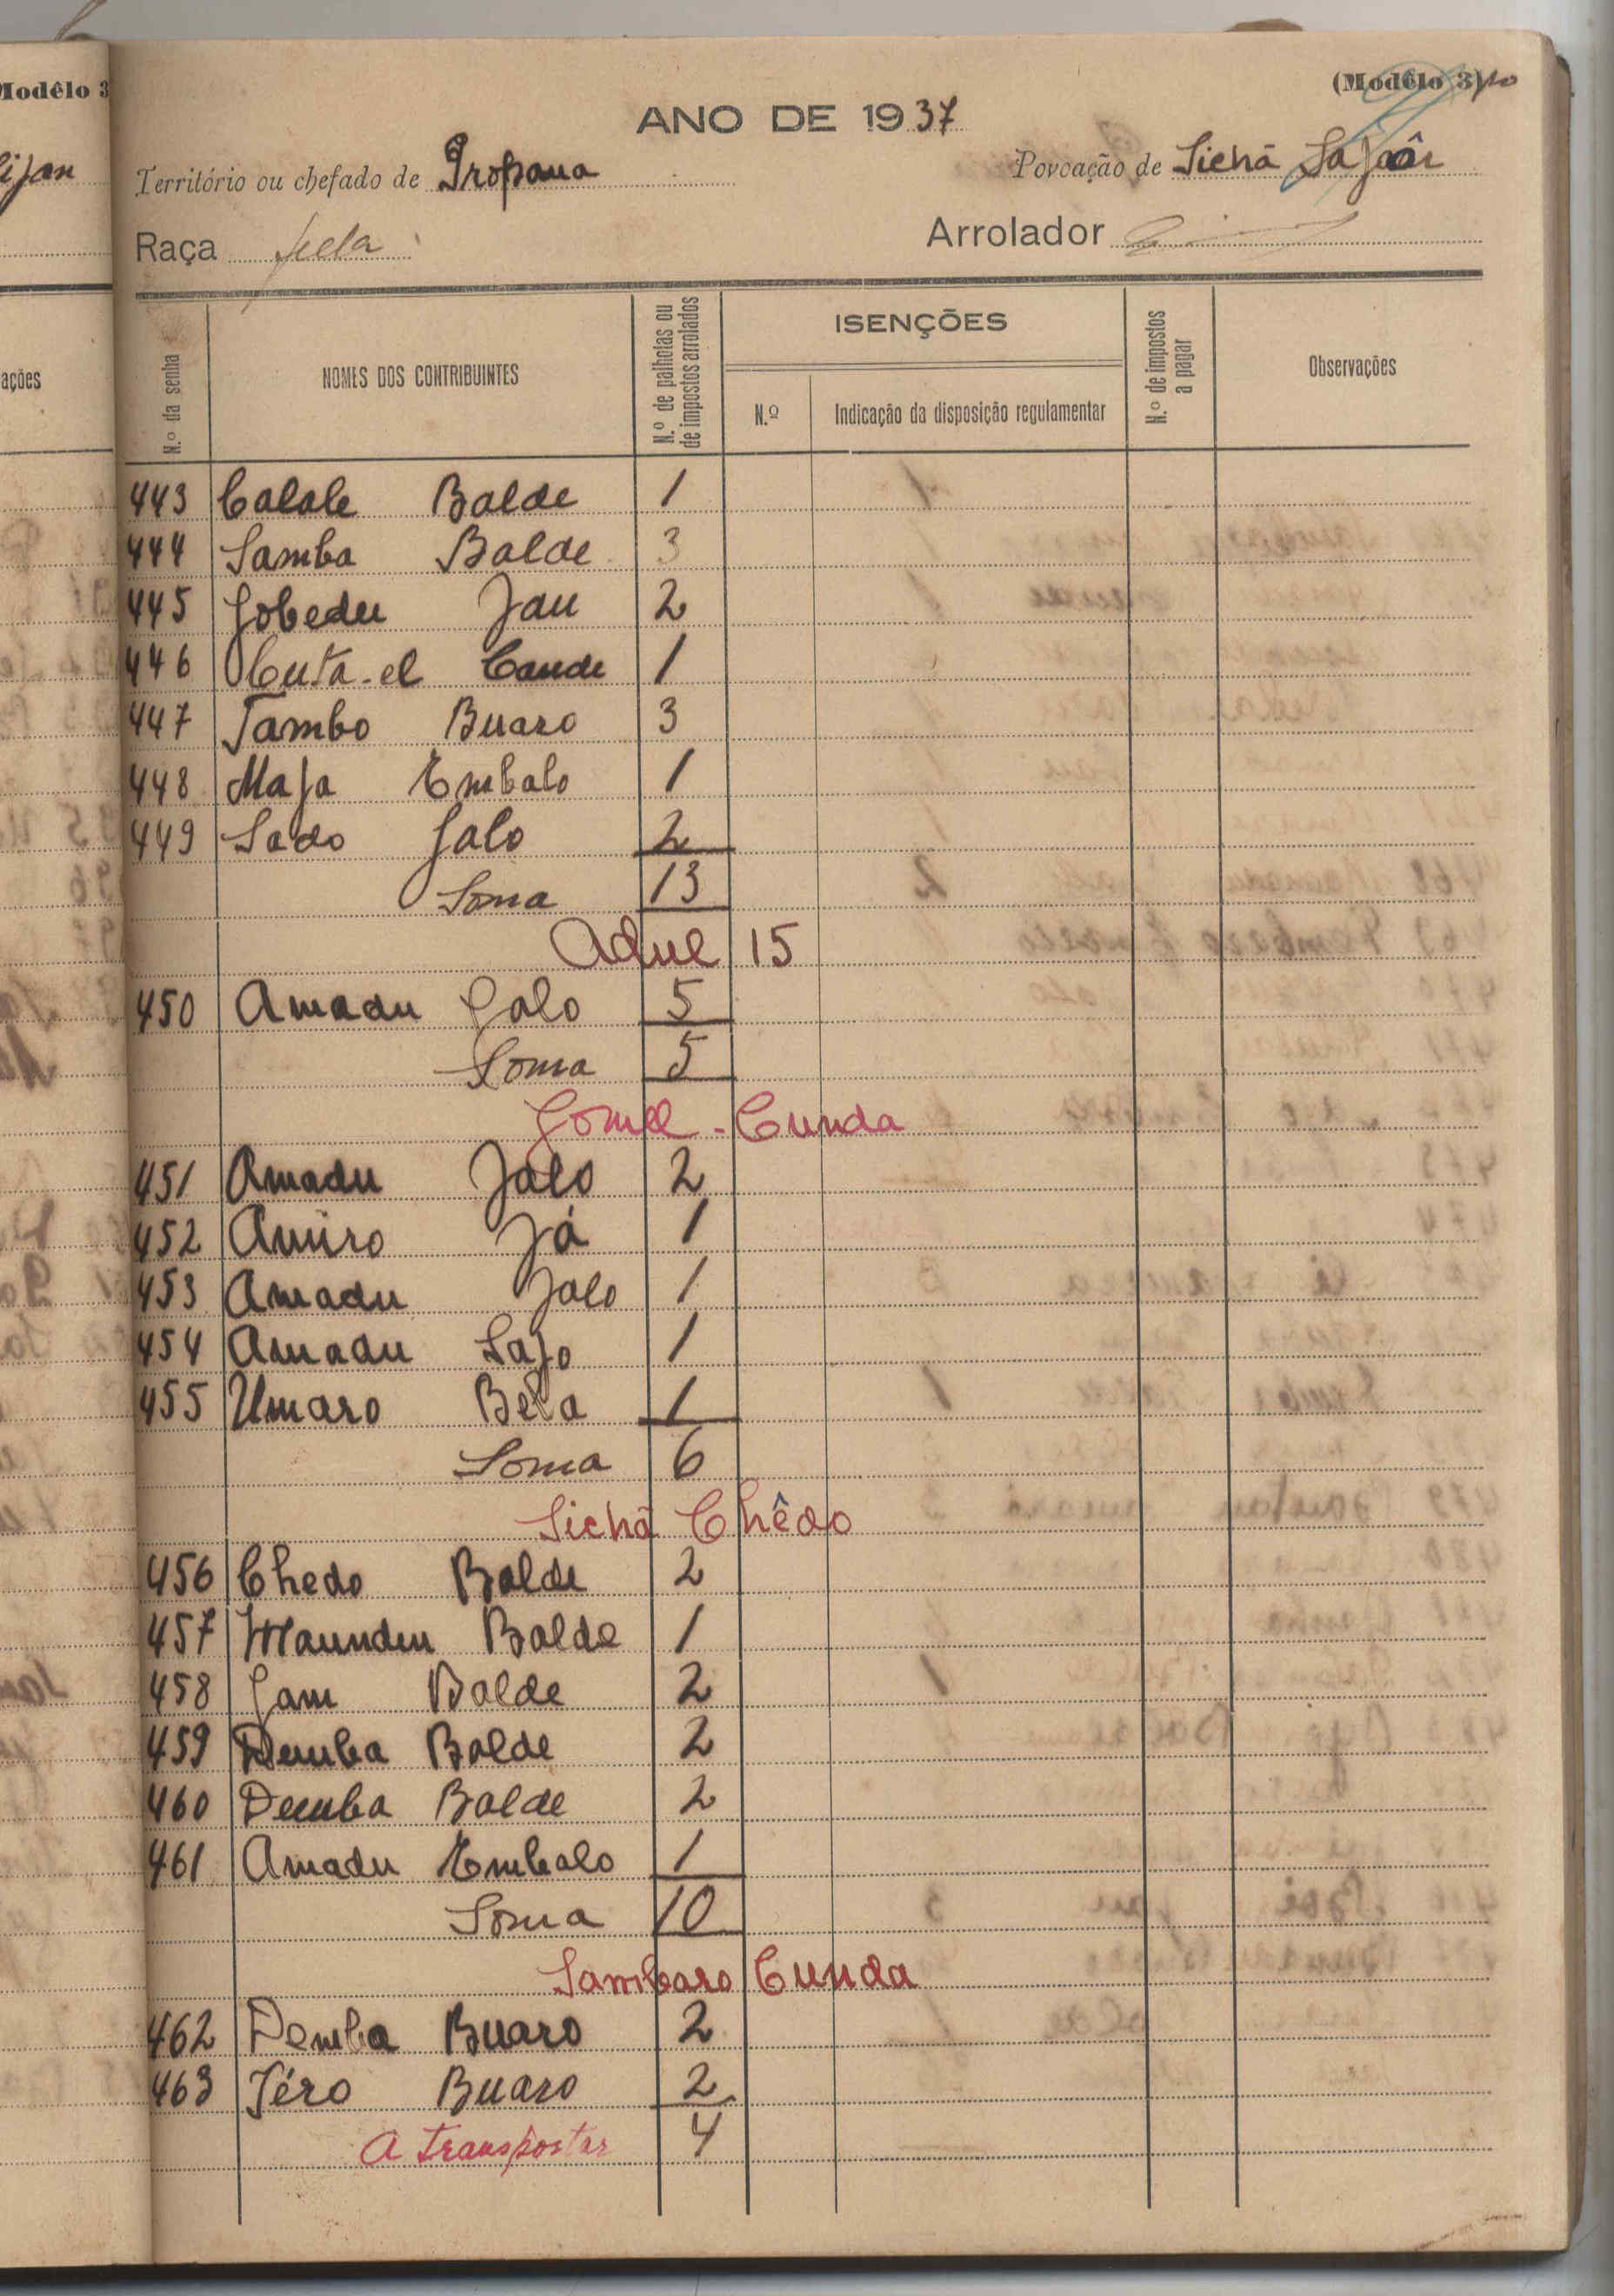 Modêlo 3
(Modêlo 3)
ANO DE 1937
Território ou chefado de Propana Povoação de Sichã Sajoâr
Raça fula Arrolador
ações
N.º da senha
NOMES DOS CONTRIBUINTES
N.º de palhotas ou de impostos arrolados
ISENÇÕES
N.º
Indicação da disposição regulamentar
N.º de impostos a pagar
Observações
443 Calale Balde 1
444 Samba Balde 3
445 Jobedu Jau 2
446 Cuta-el Cande 1
447 Tambo Buaro 3
448 Maja Embalo 1
449 Sado Jalo 2
Soma 13
Adul 15
450 Amadu Jalo 5
Soma 5
Jomel-Cunda
451 Amadu Jalo 2
452 Amiro Já 1
453 Amadu Jalo 1
454 Amadu Sajo 1
455 Umaro Bela 1
Soma 6
Sichã Chêdo
456 Chedo Balde 2
457 Maundu Balde 1
458 Jam Balde 2
459 Demba Balde 2
460 Demba Balde 2
461 Amadu Embalo 1
Soma 10
Sambaro Cunda
462 Demba Buaro 2
463 Téro Buaro 2
A transportar 4